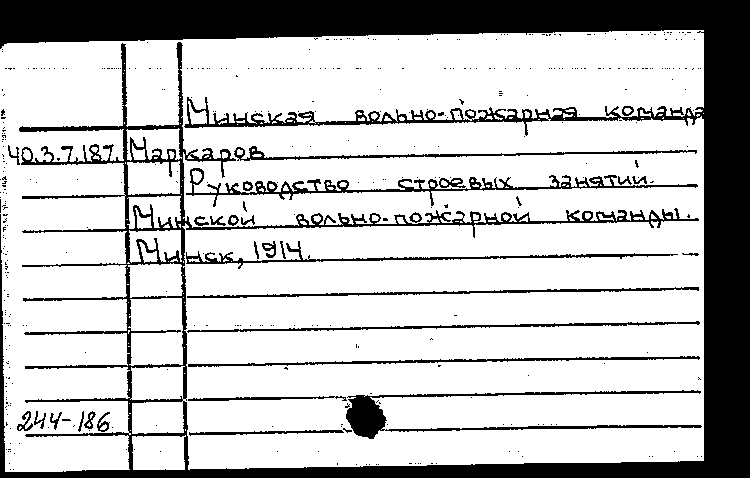 Минская вольно-пожарная команда
40.3.7.187. Маркаров
Руководство строевых занятий
Минской вольно-пожарной команды.
Минск, 1914.
244-186